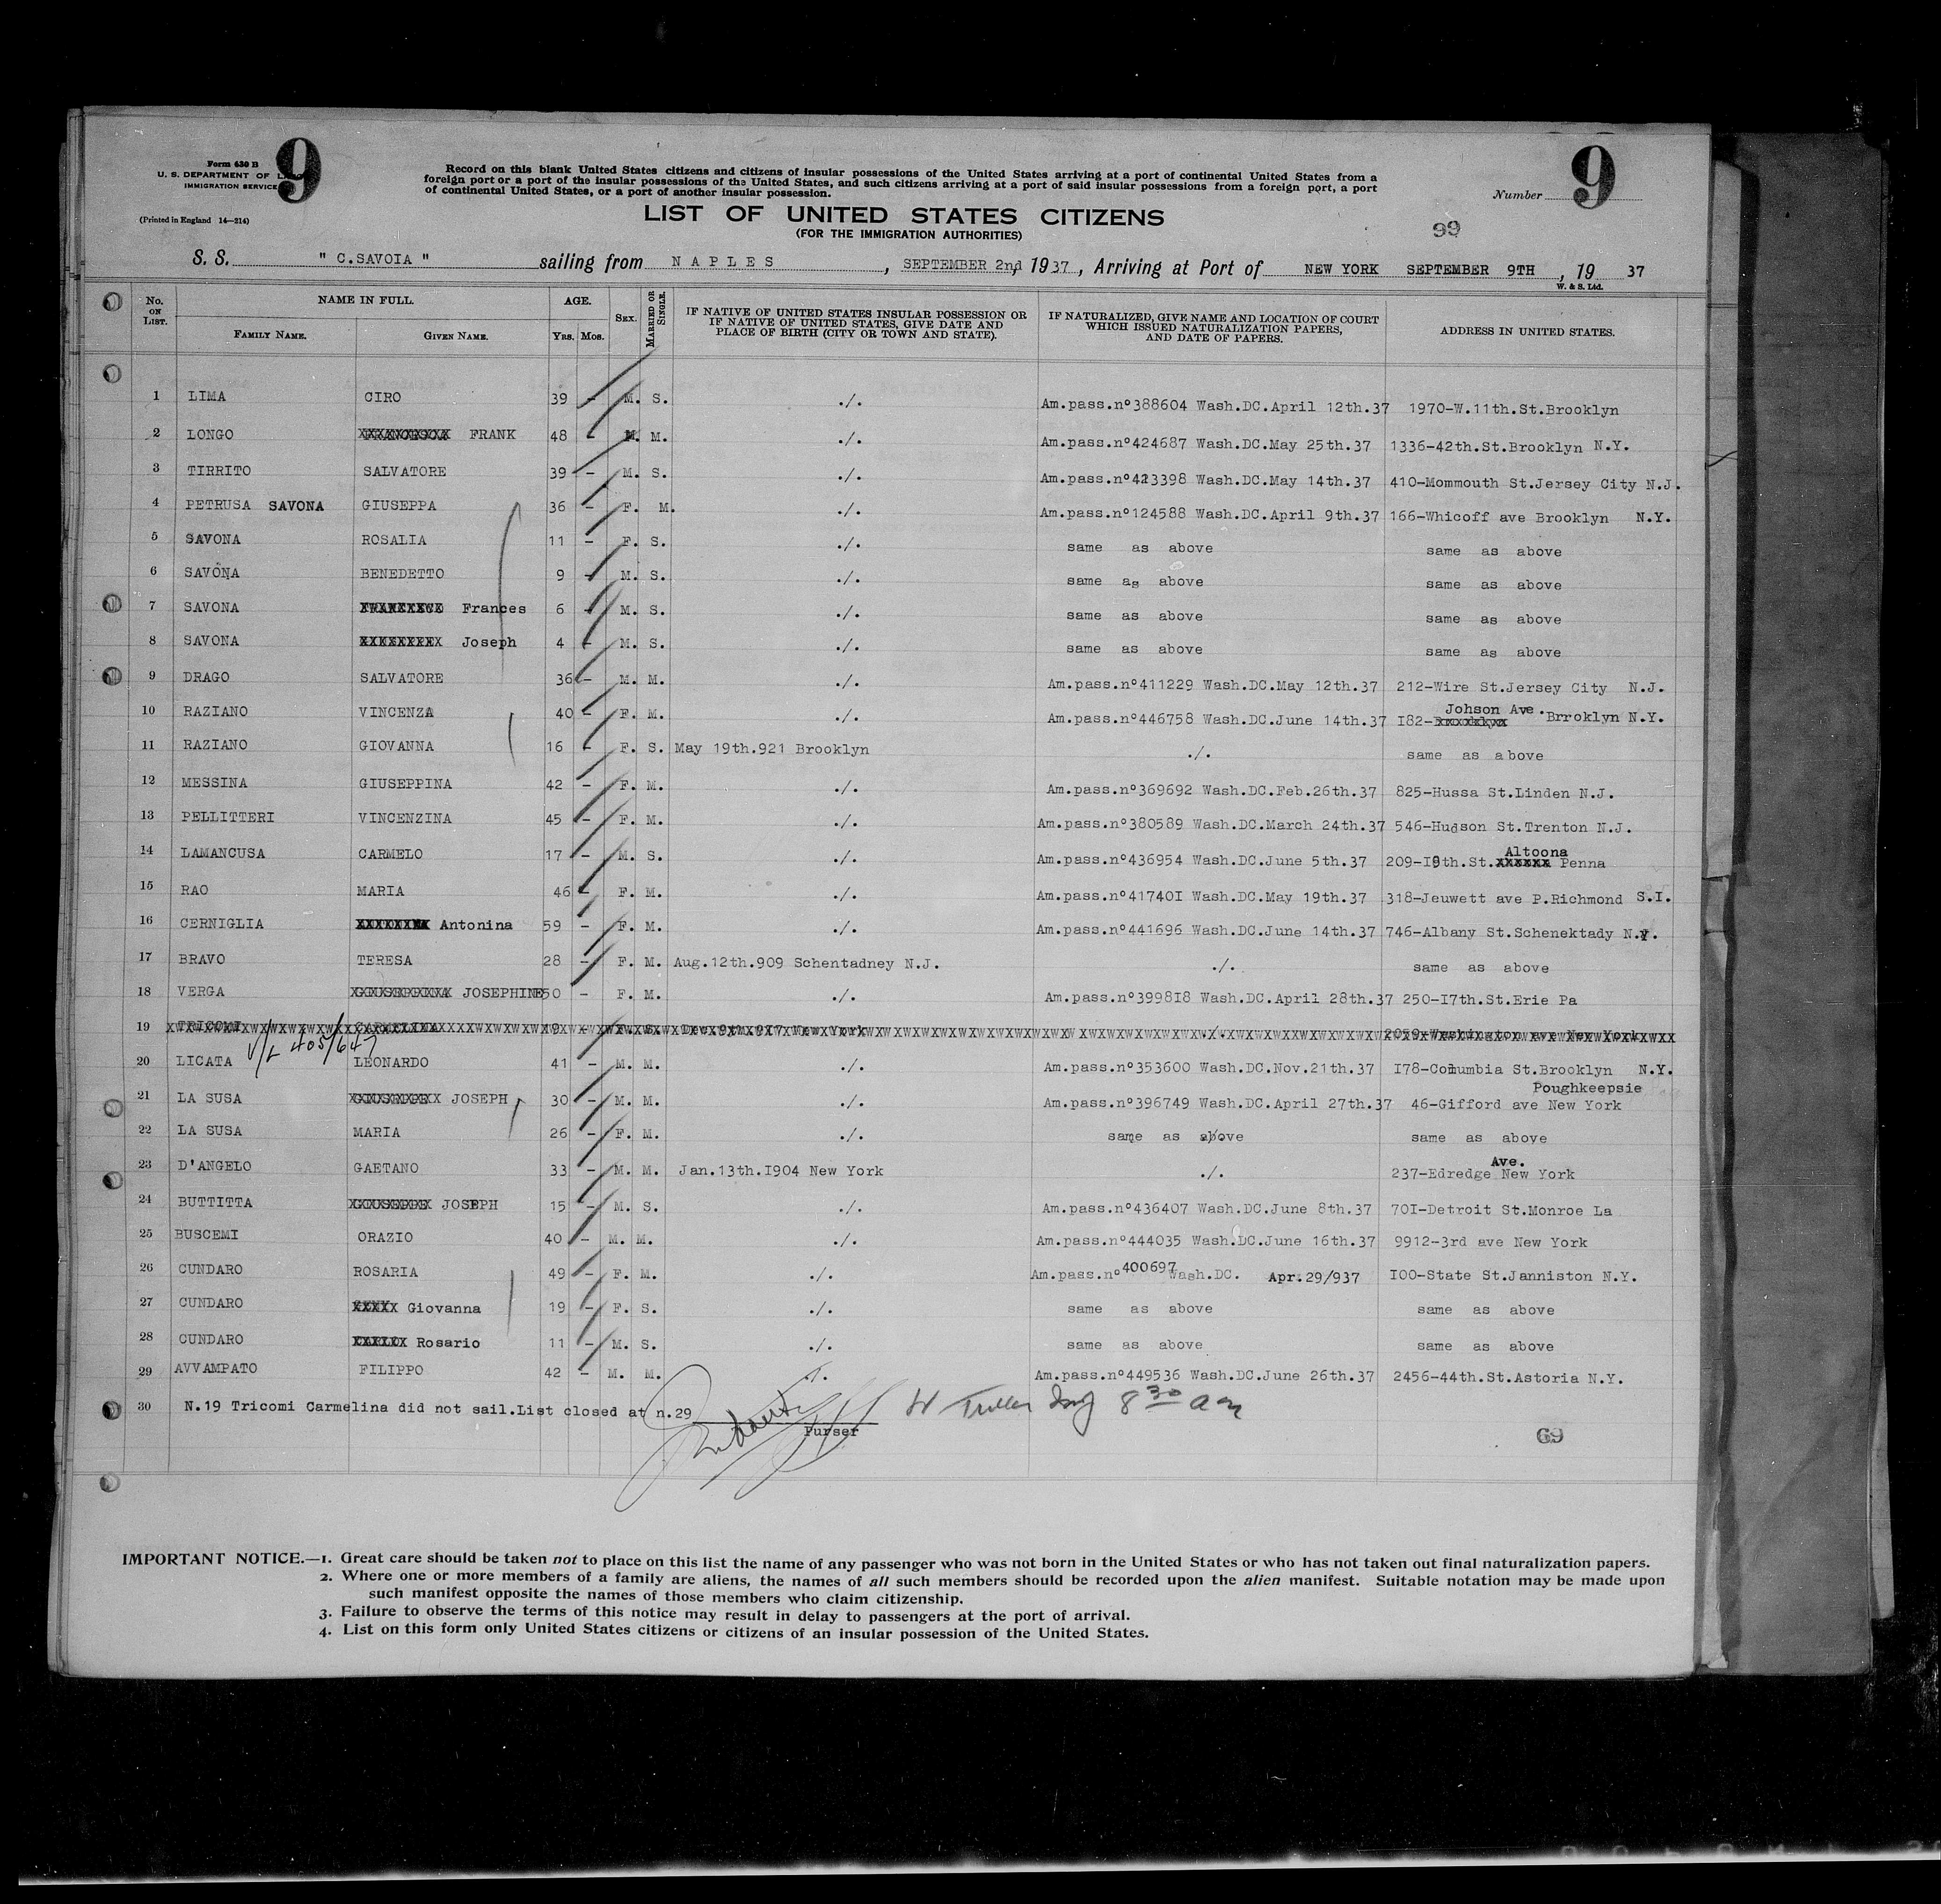 9
9
Form 630 B
U. S. DEPARTMENT OF
IMMIGRATION SERVICE
(Printed in England 14—214)
Record on this blank United States citizens and citizens of insular possessions of the United States arriving at a port of continental United States from a
foreign port or a port of the insular possessions of the United States, and such citizens arriving at a port of said insular possessions from a foreign port, a port
of continental United States, or a port of another insular possession.
Number
LIST OF UNITED STATES CITIZENS
(FOR THE IMMIGRATION AUTHORITIES)
99
S. S. " C.SAVOIA " sailing from NAPLES , SEPTEMBER 2nd, 1937, Arriving at Port of NEW YORK SEPTEMBER 9TH , 19 37
W. & S. Ltd.
No. ON LIST. NAME IN FULL. FAMILY NAME. GIVEN NAME. AGE. YRS. MOS. SEX. MARRIED OR SINGLE. IF NATIVE OF UNITED STATES INSULAR POSSESSION OR IF NATIVE OF UNITED STATES, GIVE DATE AND PLACE OF BIRTH (CITY OR TOWN AND STATE). IF NATURALIZED, GIVE NAME AND LOCATION OF COURT WHICH ISSUED NATURALIZATION PAPERS, AND DATE OF PAPERS. ADDRESS IN UNITED STATES.
1 LIMA CIRO 39 - M. S. ./. Am.pass.nº388604 Wash.DC.April 12th.37 1970-W.11th.St.Brooklyn
2 LONGO FRANK 48 - M. M. ./. Am.pass.nº424687 Wash.DC.May 25th.37 1336-42th.St.Brooklyn N.Y.
3 TIRRITO SALVATORE 39 - M. S. ./. Am.pass.nº423398 Wash.DC.May 14th.37 410-Mommouth St.Jersey City N.J.
4 PETRUSA SAVONA GIUSEPPA 36 - F. M. ./. Am.pass.nº124588 Wash.DC.April 9th.37 166-Whicoff ave Brooklyn N.Y.
5 SAVONA ROSALIA 11 - F. S. ./. same as above same as above
6 SAVONA BENEDETTO 9 - M. S. ./. same as above same as above
7 SAVONA Frances 6 - M. S. ./. same as above same as above
8 SAVONA Joseph 4 - M. S. ./. same as above same as above
9 DRAGO SALVATORE 36 - M. M. ./. Am.pass.nº411229 Wash.DC.May 12th.37 212-Wire St.Jersey City N.J.
10 RAZIANO VINCENZA 40 - F. M. ./. Am.pass.nº446758 Wash.DC.June 14th.37 I82- Johson Ave. Brroklyn N.Y.
11 RAZIANO GIOVANNA 16 - F. S. May 19th.921 Brooklyn ./. same as above
12 MESSINA GIUSEPPINA 42 - F. M. ./. Am.pass.nº369692 Wash.DC.Feb.26th.37 825-Hussa St.Linden N.J.
13 PELLITTERI VINCENZINA 45 - F. M. ./. Am.pass.nº380589 Wash.DC.March 24th.37 546-Hudson St.Trenton N.J.
14 LAMANCUSA CARMELO 17 - M. S. ./. Am.pass.nº436954 Wash.DC.June 5th.37 209-I9th.St. Altoona Penna
15 RAO MARIA 46 - F. M. ./. Am.pass.nº41740I Wash.DC.May 19th.37 318-Jeuwett ave P.Richmond S.I.
16 CERNIGLIA Antonina 59 - F. M. ./. Am.pass.nº441696 Wash.DC.June 14th.37 746-Albany St.Schenektady N.Y.
17 BRAVO TERESA 28 - F. M. Aug.12th.909 Schentadney N.J. ./. same as above
18 VERGA JOSEPHINE 50 - F. M. ./. Am.pass.nº3998I8 Wash.DC.April 28th.37 250-I7th.St.Erie Pa
19 TRICOMI CARMELINA 2059-Washington ave New York
V/L 405/647
20 LICATA LEONARDO 41 - M. M. ./. Am.pass.nº353600 Wash.DC.Nov.21th.37 I78-Columbia St.Brooklyn N.Y.
21 LA SUSA JOSEPH 30 - M. M. ./. Am.pass.nº396749 Wash.DC.April 27th.37 46-Gifford ave Poughkeepsie New York
22 LA SUSA MARIA 26 - F. M. ./. same as above same as above
23 D'ANGELO GAETANO 33 - M. M. Jan.13th.I904 New York ./. 237-Edredge Ave. New York
24 BUTTITTA JOSEPH 15 - M. S. ./. Am.pass.nº436407 Wash.DC.June 8th.37 70I-Detroit St.Monroe La
25 BUSCEMI ORAZIO 40 - M. M. ./. Am.pass.nº444035 Wash.DC.June 16th.37 9912-3rd ave New York
26 CUNDARO ROSARIA 49 - F. M. ./. Am.pass.nº400697 Wash.DC. Apr.29/937 I00-State St.Janniston N.Y.
27 CUNDARO Giovanna 19 - F. S. ./. same as above same as above
28 CUNDARO Rosario 11 - M. S. ./. same as above same as above
29 AVVAMPATO FILIPPO 42 - M. M. ./. Am.pass.nº449536 Wash.DC.June 26th.37 2456-44th.St.Astoria N.Y.
30 N.19 Tricomi Carmelina did not sail.List closed at n.29
8 30 am
Purser
69
IMPORTANT NOTICE.—1. Great care should be taken not to place on this list the name of any passenger who was not born in the United States or who has not taken out final naturalization papers.
2. Where one or more members of a family are aliens, the names of all such members should be recorded upon the alien manifest. Suitable notation may be made upon
such manifest opposite the names of those members who claim citizenship.
3. Failure to observe the terms of this notice may result in delay to passengers at the port of arrival.
4. List on this form only United States citizens or citizens of an insular possession of the United States.